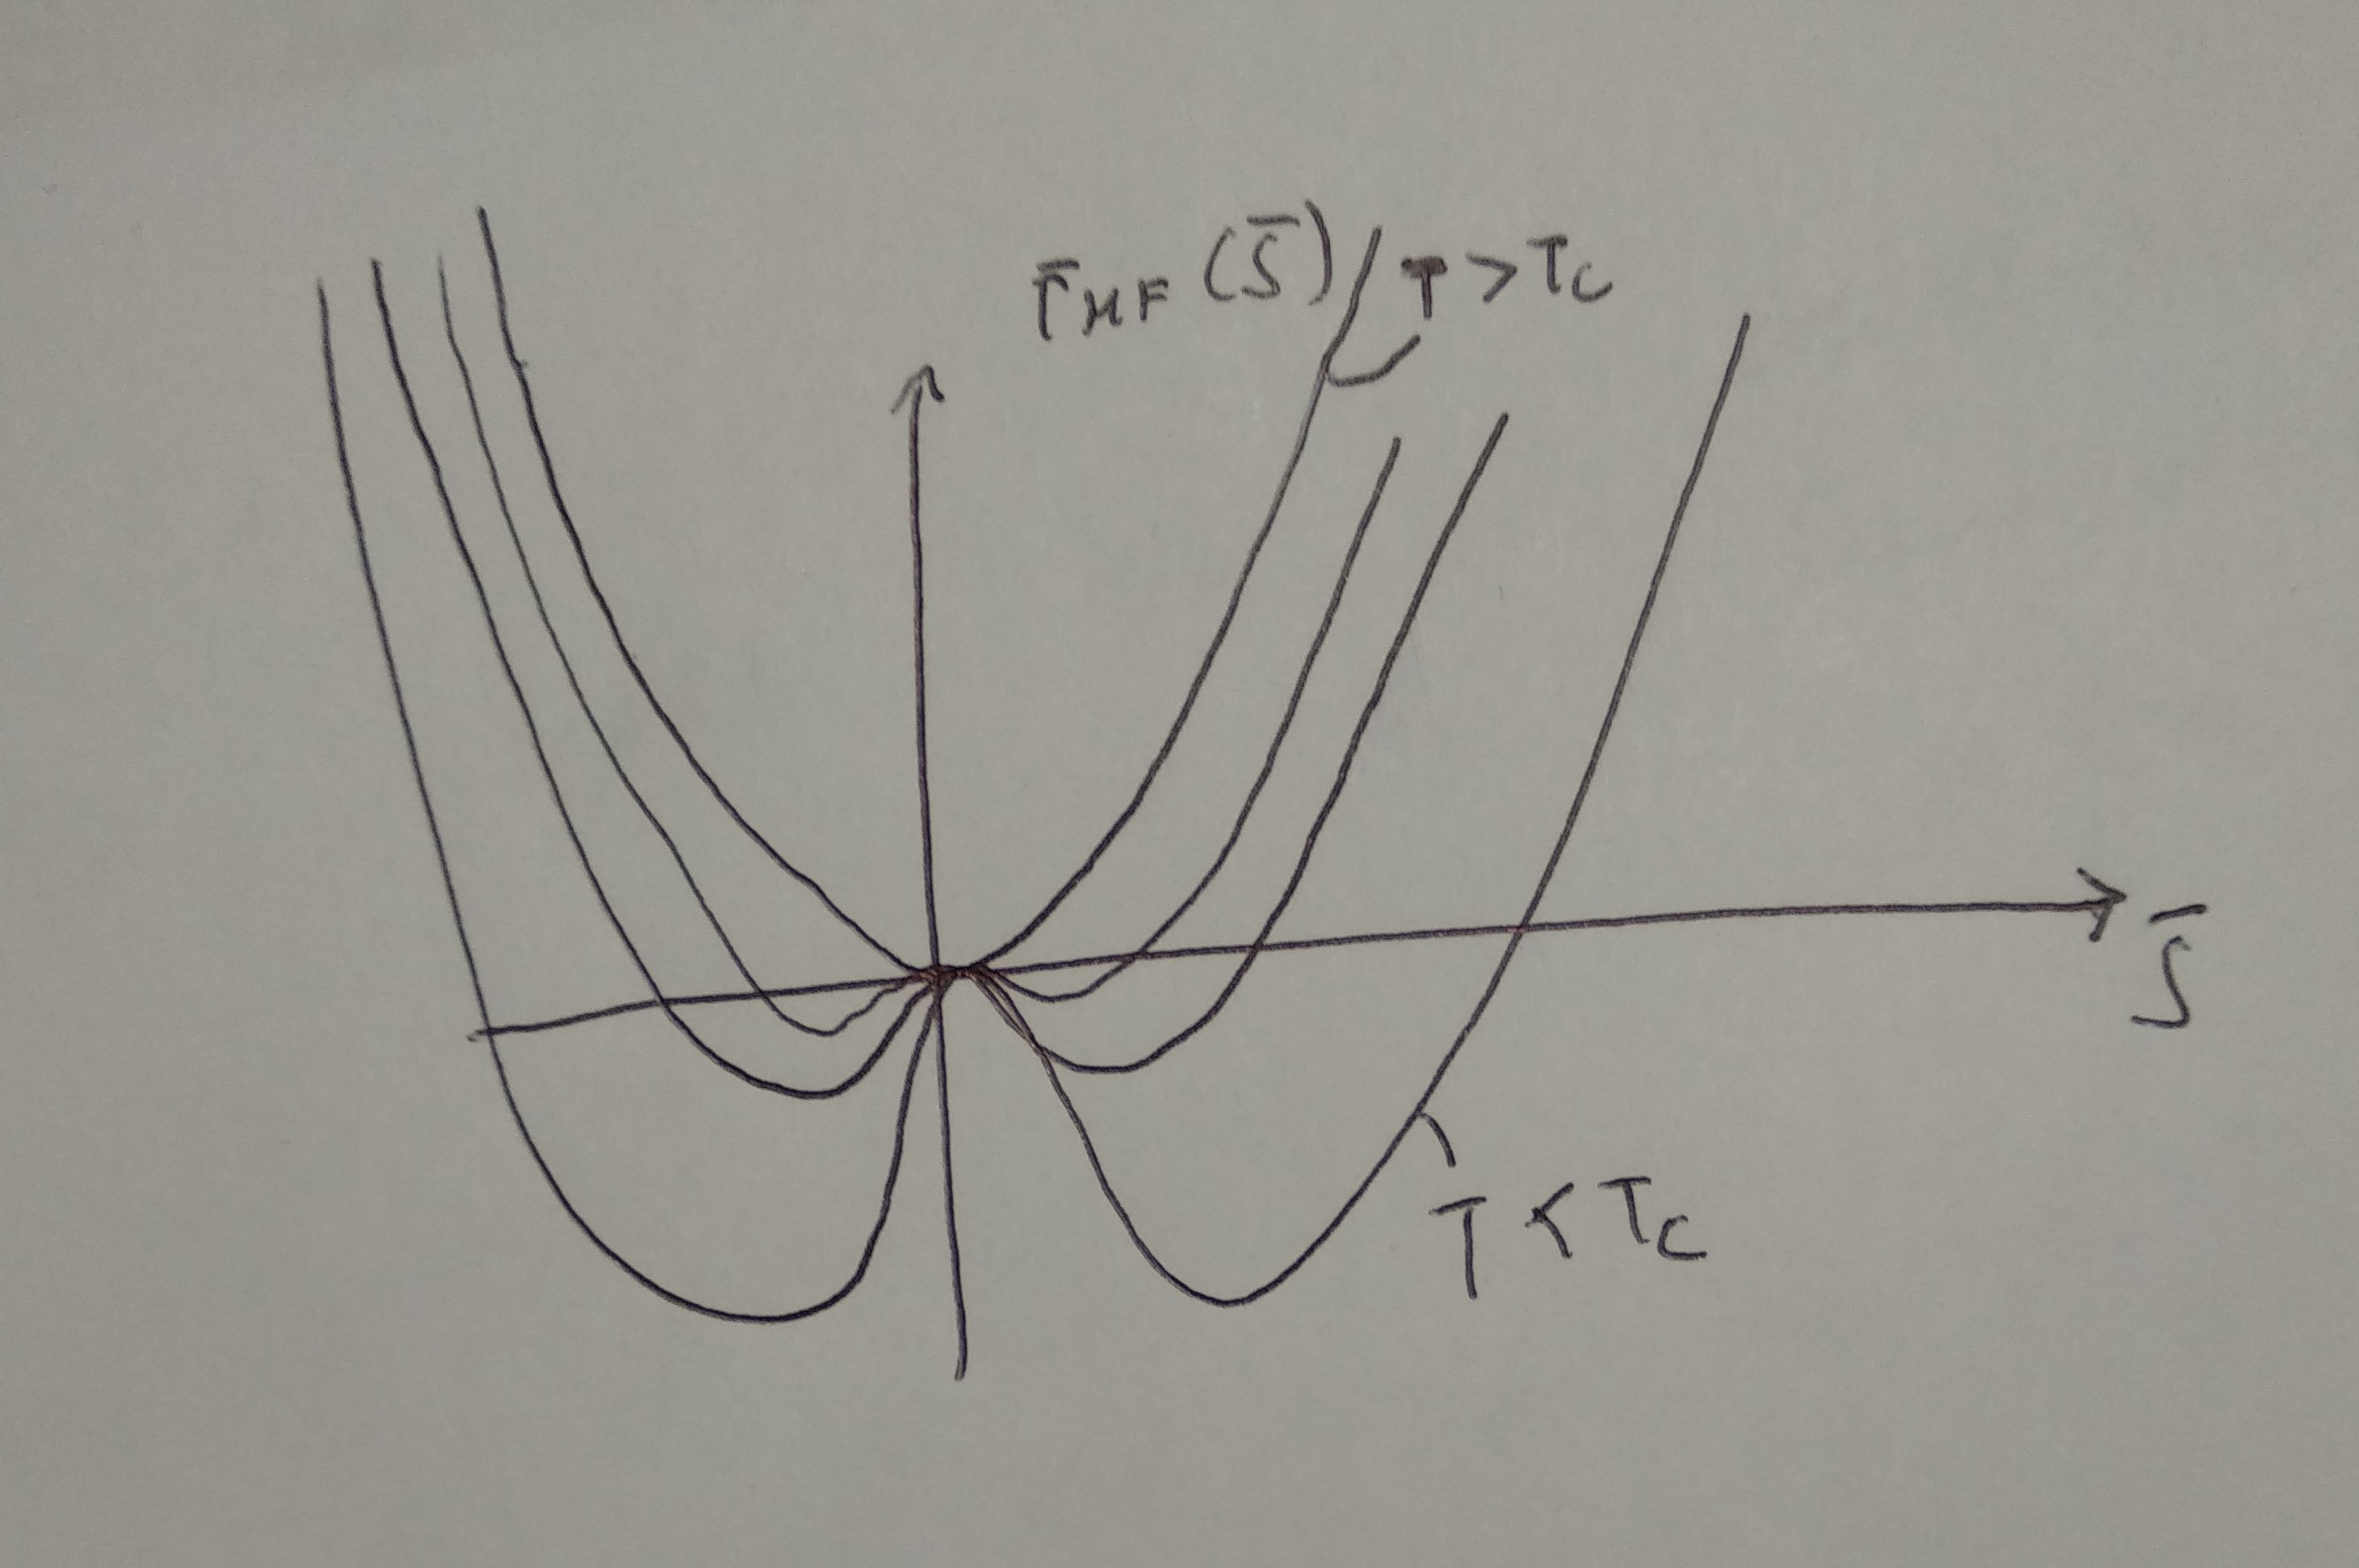 F̄MF (S̄)
T > Tc
S̄
T < Tc